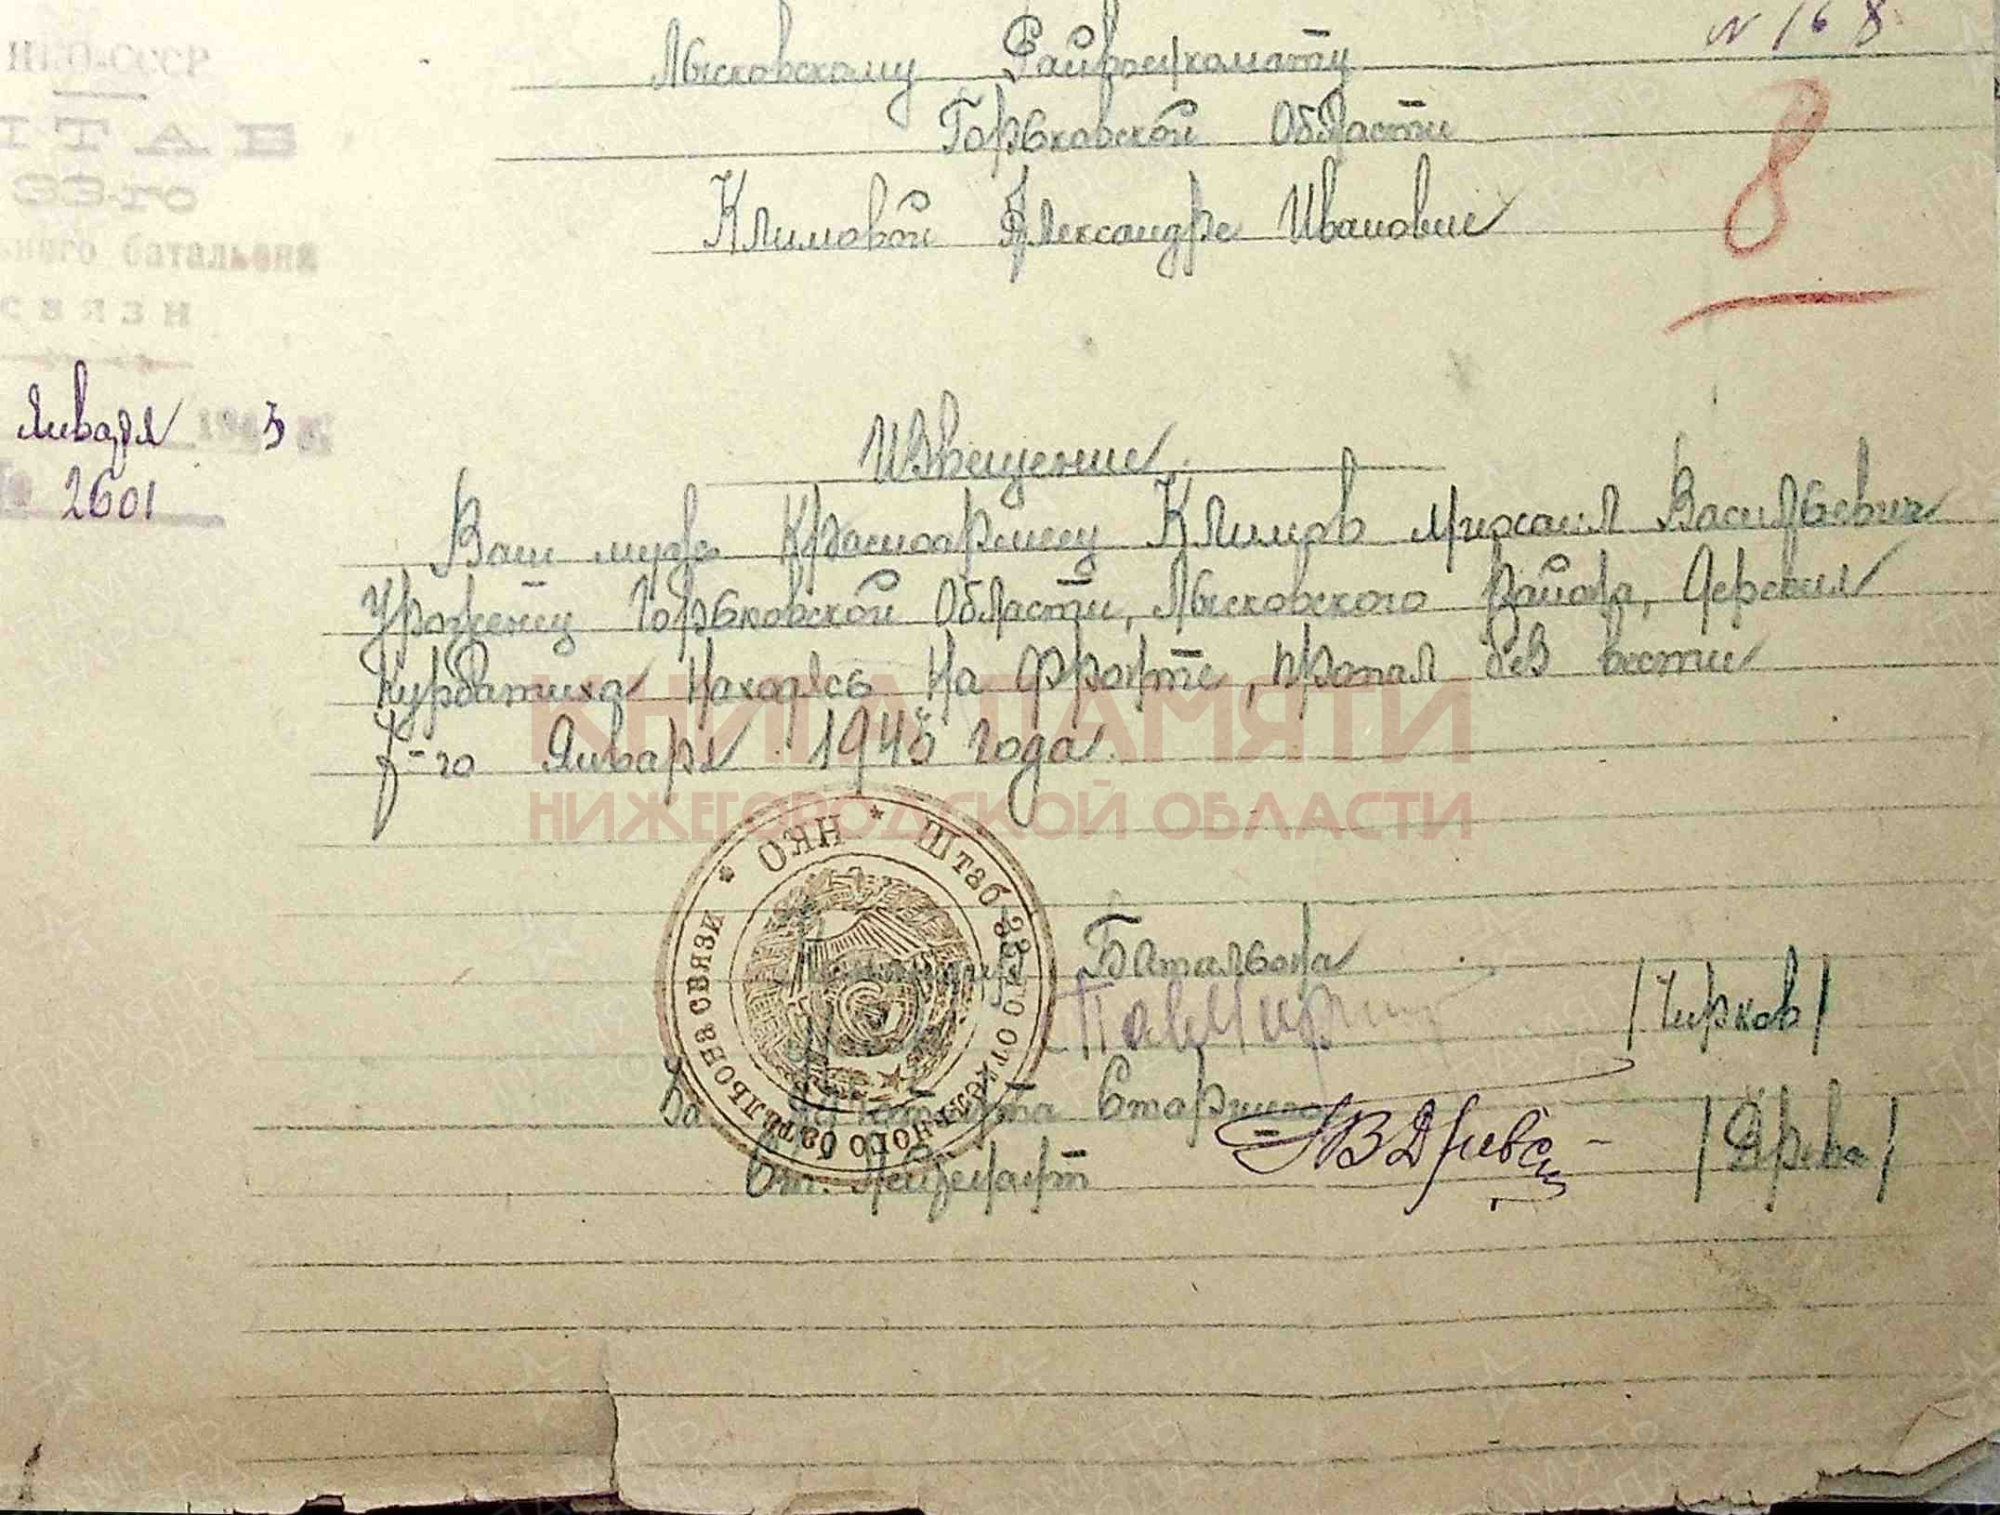 № 168
НКО-СССР
ШТАБ
33-го
ьного батальона
связи
Января 1943 г.
№ 2601
Лысковскому Райвоенкомату
Горьковской Области
Климовой Александре Ивановне
8
Извещение
Ваш муж Красноармеец Климов Михаил Васильевич
Уроженец Горьковской Области, Лысковского Района, Деревня
Курбатиха Находясь На Фронте, пропал без вести
7-го Января 1943 года.
КНИГА ПАМЯТИ
НИЖЕГОРОДСКОЙ ОБЛАСТИ
НКО * Штаб 33-го отдельного батальона связи *
Батальона
/Чирков/
Адъютанта Старшего
Ст. Лейтенант /Древа/